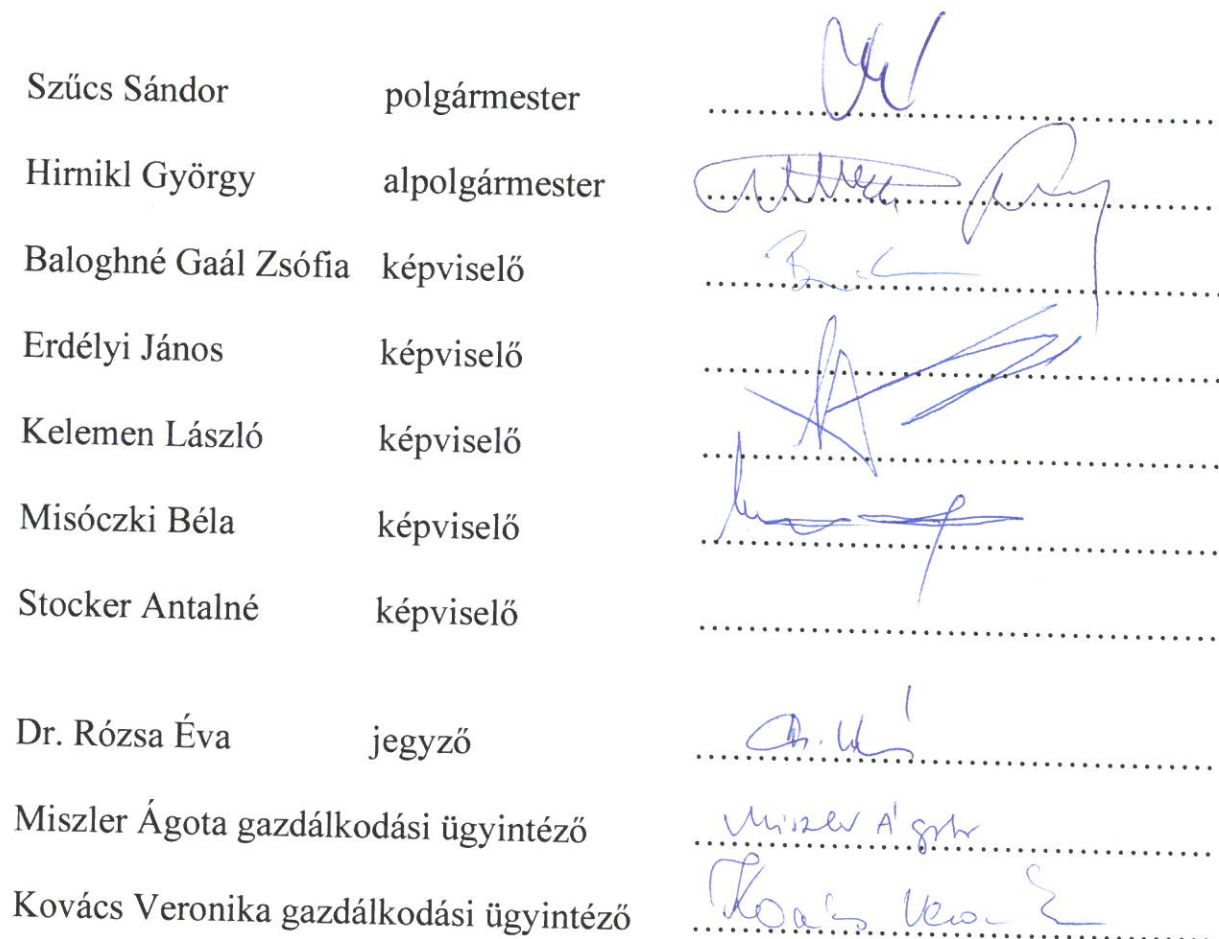 Szűcs Sándor polgármester
Hirnikl György alpolgármester
Baloghné Gaál Zsófia képviselő
Erdélyi János képviselő
Kelemen László képviselő
Misóczki Béla képviselő
Stocker Antalné képviselő
Dr. Rózsa Éva jegyző
Miszler Ágota gazdálkodási ügyintéző Miszler Ágota
Kovács Veronika gazdálkodási ügyintéző Kovács